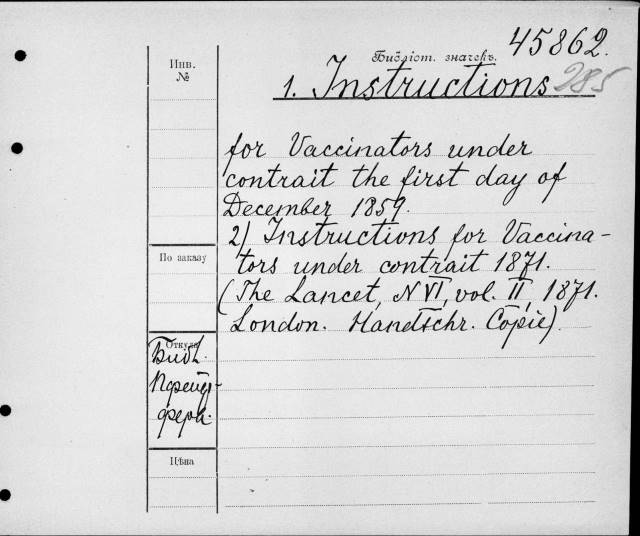 45862.
Инв.
№
Библіот. значекъ.
1. Instructions 285
for Vaccinators under
contrait the first day of
December 1859.
2) Instructions for Vaccina-
tors under contrait 1871.
По заказу
(The Lancet, N VI, vol. II, 1871.
London. Handschr. Copie).
Откуда
Библ.
Пфейф-
фера.
Цѣна